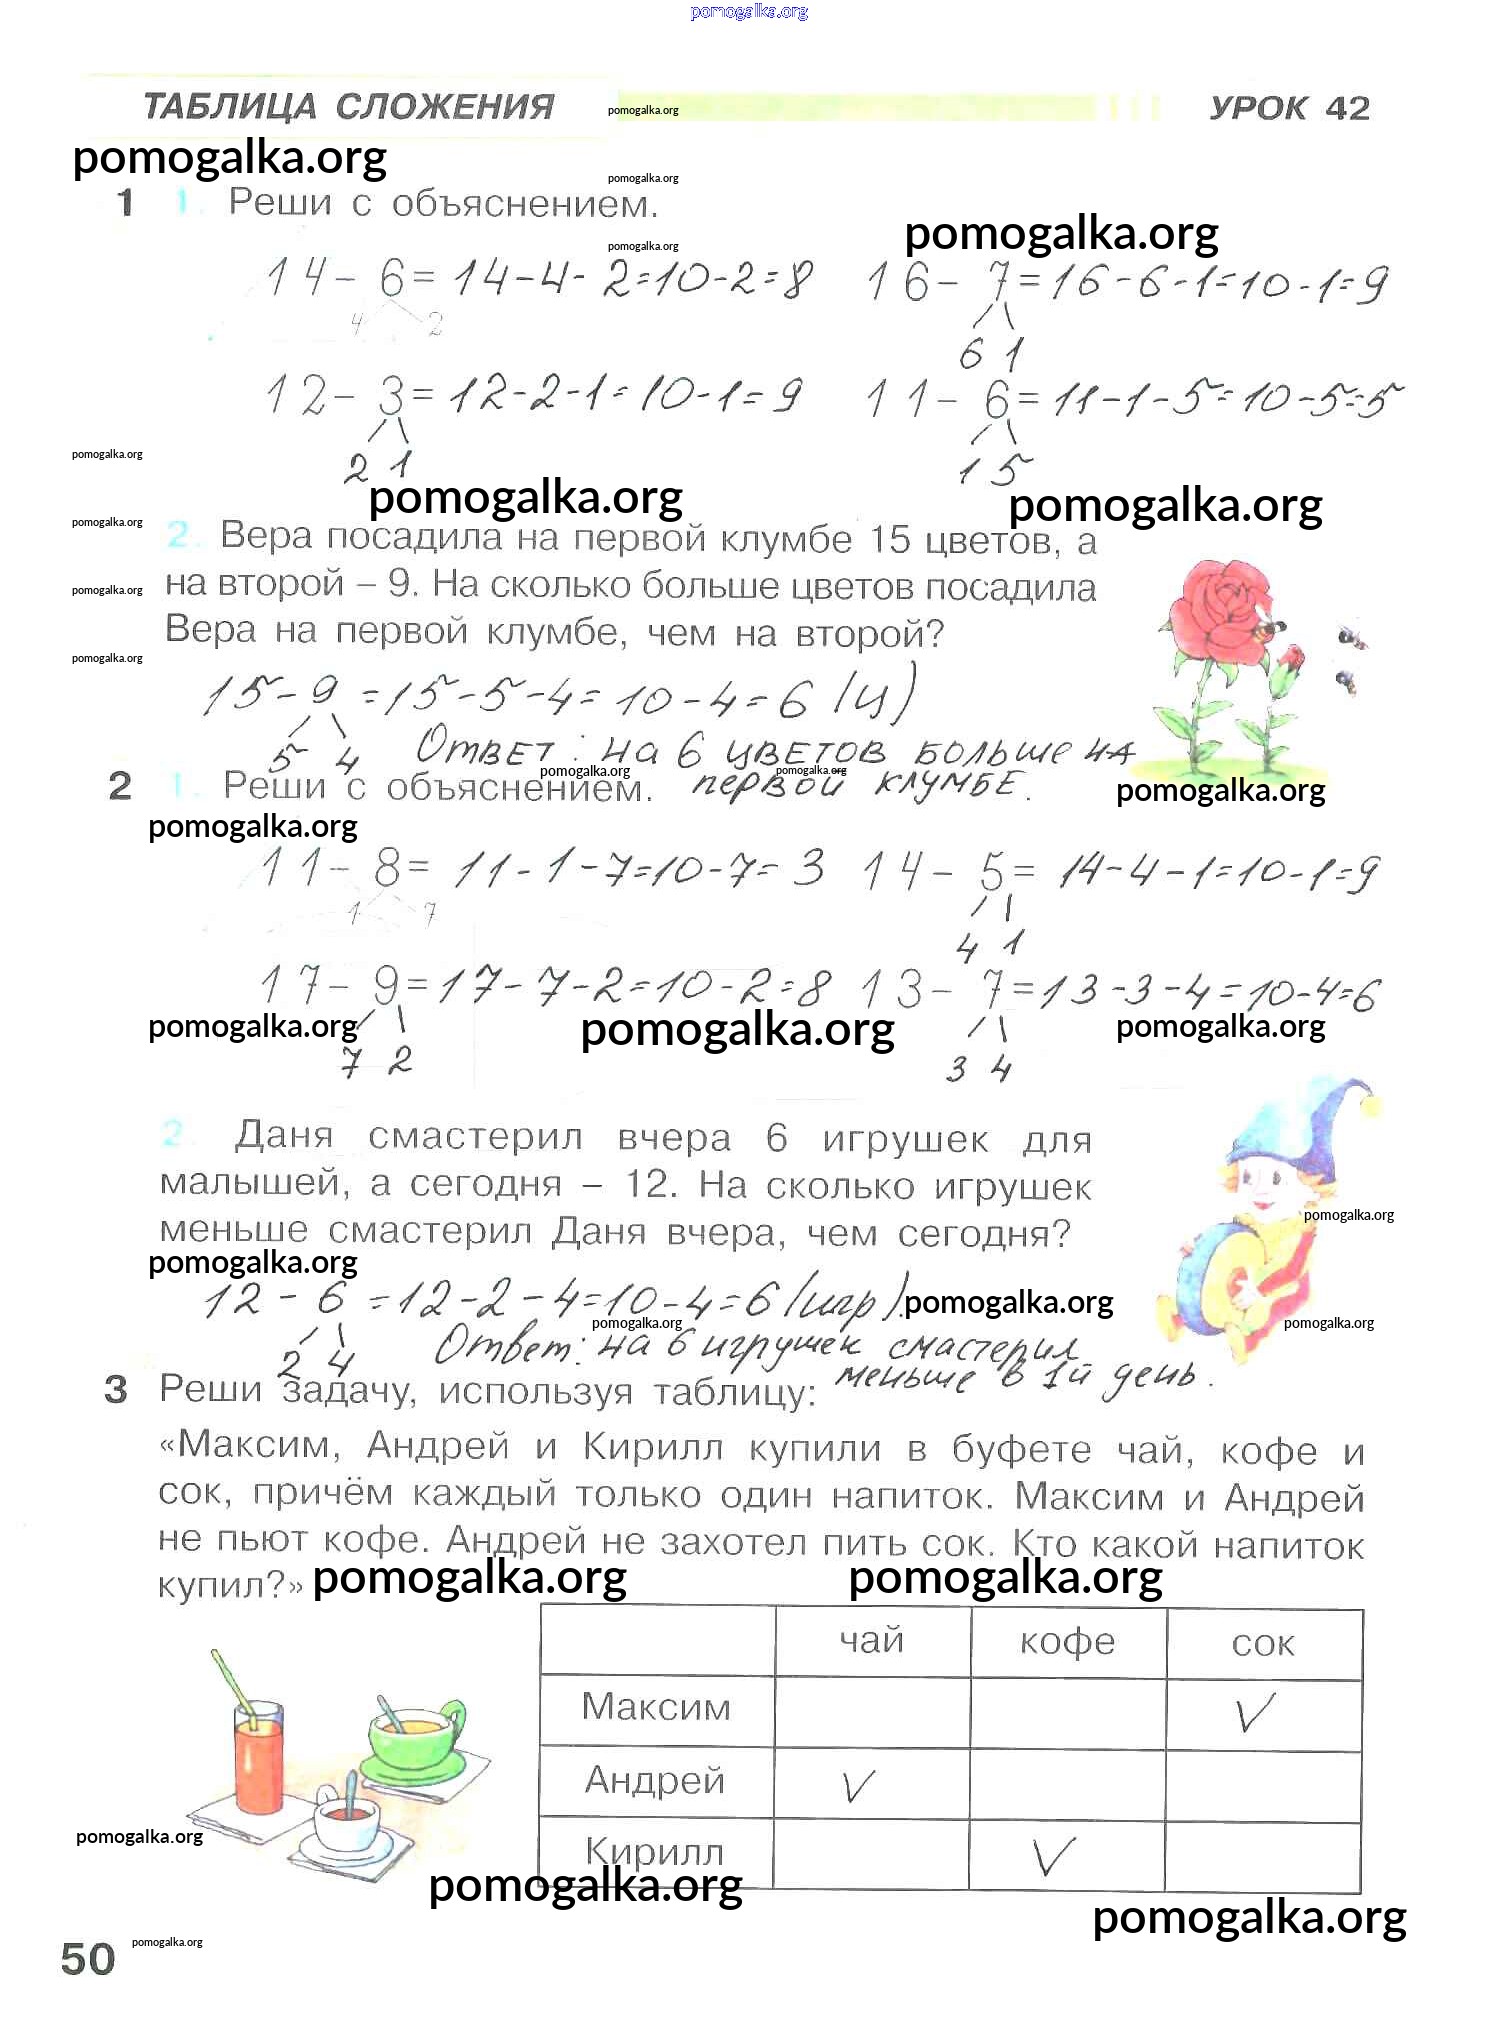 pomogalka.org
ТАБЛИЦА СЛОЖЕНИЯ pomogalka.org УРОК 42
pomogalka.org
pomogalka.org
1 1. Реши с объяснением.
pomogalka.org
pomogalka.org
14 - 6 = 14-4-2=10-2=8 16 - 7 = 16-6-1=10-1=9
4 2
6 1
12 - 3 = 12-2-1=10-1=9 11 - 6 = 11-1-5=10-5=5
pomogalka.org
2 1 1 5
pomogalka.org pomogalka.org
pomogalka.org
2. Вера посадила на первой клумбе 15 цветов, а
на второй – 9. На сколько больше цветов посадила
pomogalka.org
Вера на первой клумбе, чем на второй?
pomogalka.org
15-9=15-5-4=10-4=6 (ц)
5 4 Ответ: на 6 цветов больше на
pomogalka.org pomogalka.org
2 1. Реши с объяснением. первой клумбе.
pomogalka.org
pomogalka.org
11 - 8 = 11-1-7=10-7=3 14 - 5 = 14-4-1=10-1=9
1 7
4 1
17 - 9 = 17-7-2=10-2=8 13 - 7 = 13-3-4=10-4=6
pomogalka.org pomogalka.org pomogalka.org
7 2 3 4
2. Даня смастерил вчера 6 игрушек для
малышей, а сегодня – 12. На сколько игрушек
pomogalka.org
меньше смастерил Даня вчера, чем сегодня?
pomogalka.org
12-6=12-2-4=10-4=6 (игр). pomogalka.org
pomogalka.org pomogalka.org
2 4 Ответ: на 6 игрушек смастерил
меньше в 1й день.
3 Реши задачу, используя таблицу:
«Максим, Андрей и Кирилл купили в буфете чай, кофе и
сок, причём каждый только один напиток. Максим и Андрей
не пьют кофе. Андрей не захотел пить сок. Кто какой напиток
купил?» pomogalka.org pomogalka.org
чай кофе сок
Максим
Андрей
pomogalka.org
Кирилл
pomogalka.org
pomogalka.org
50 pomogalka.org